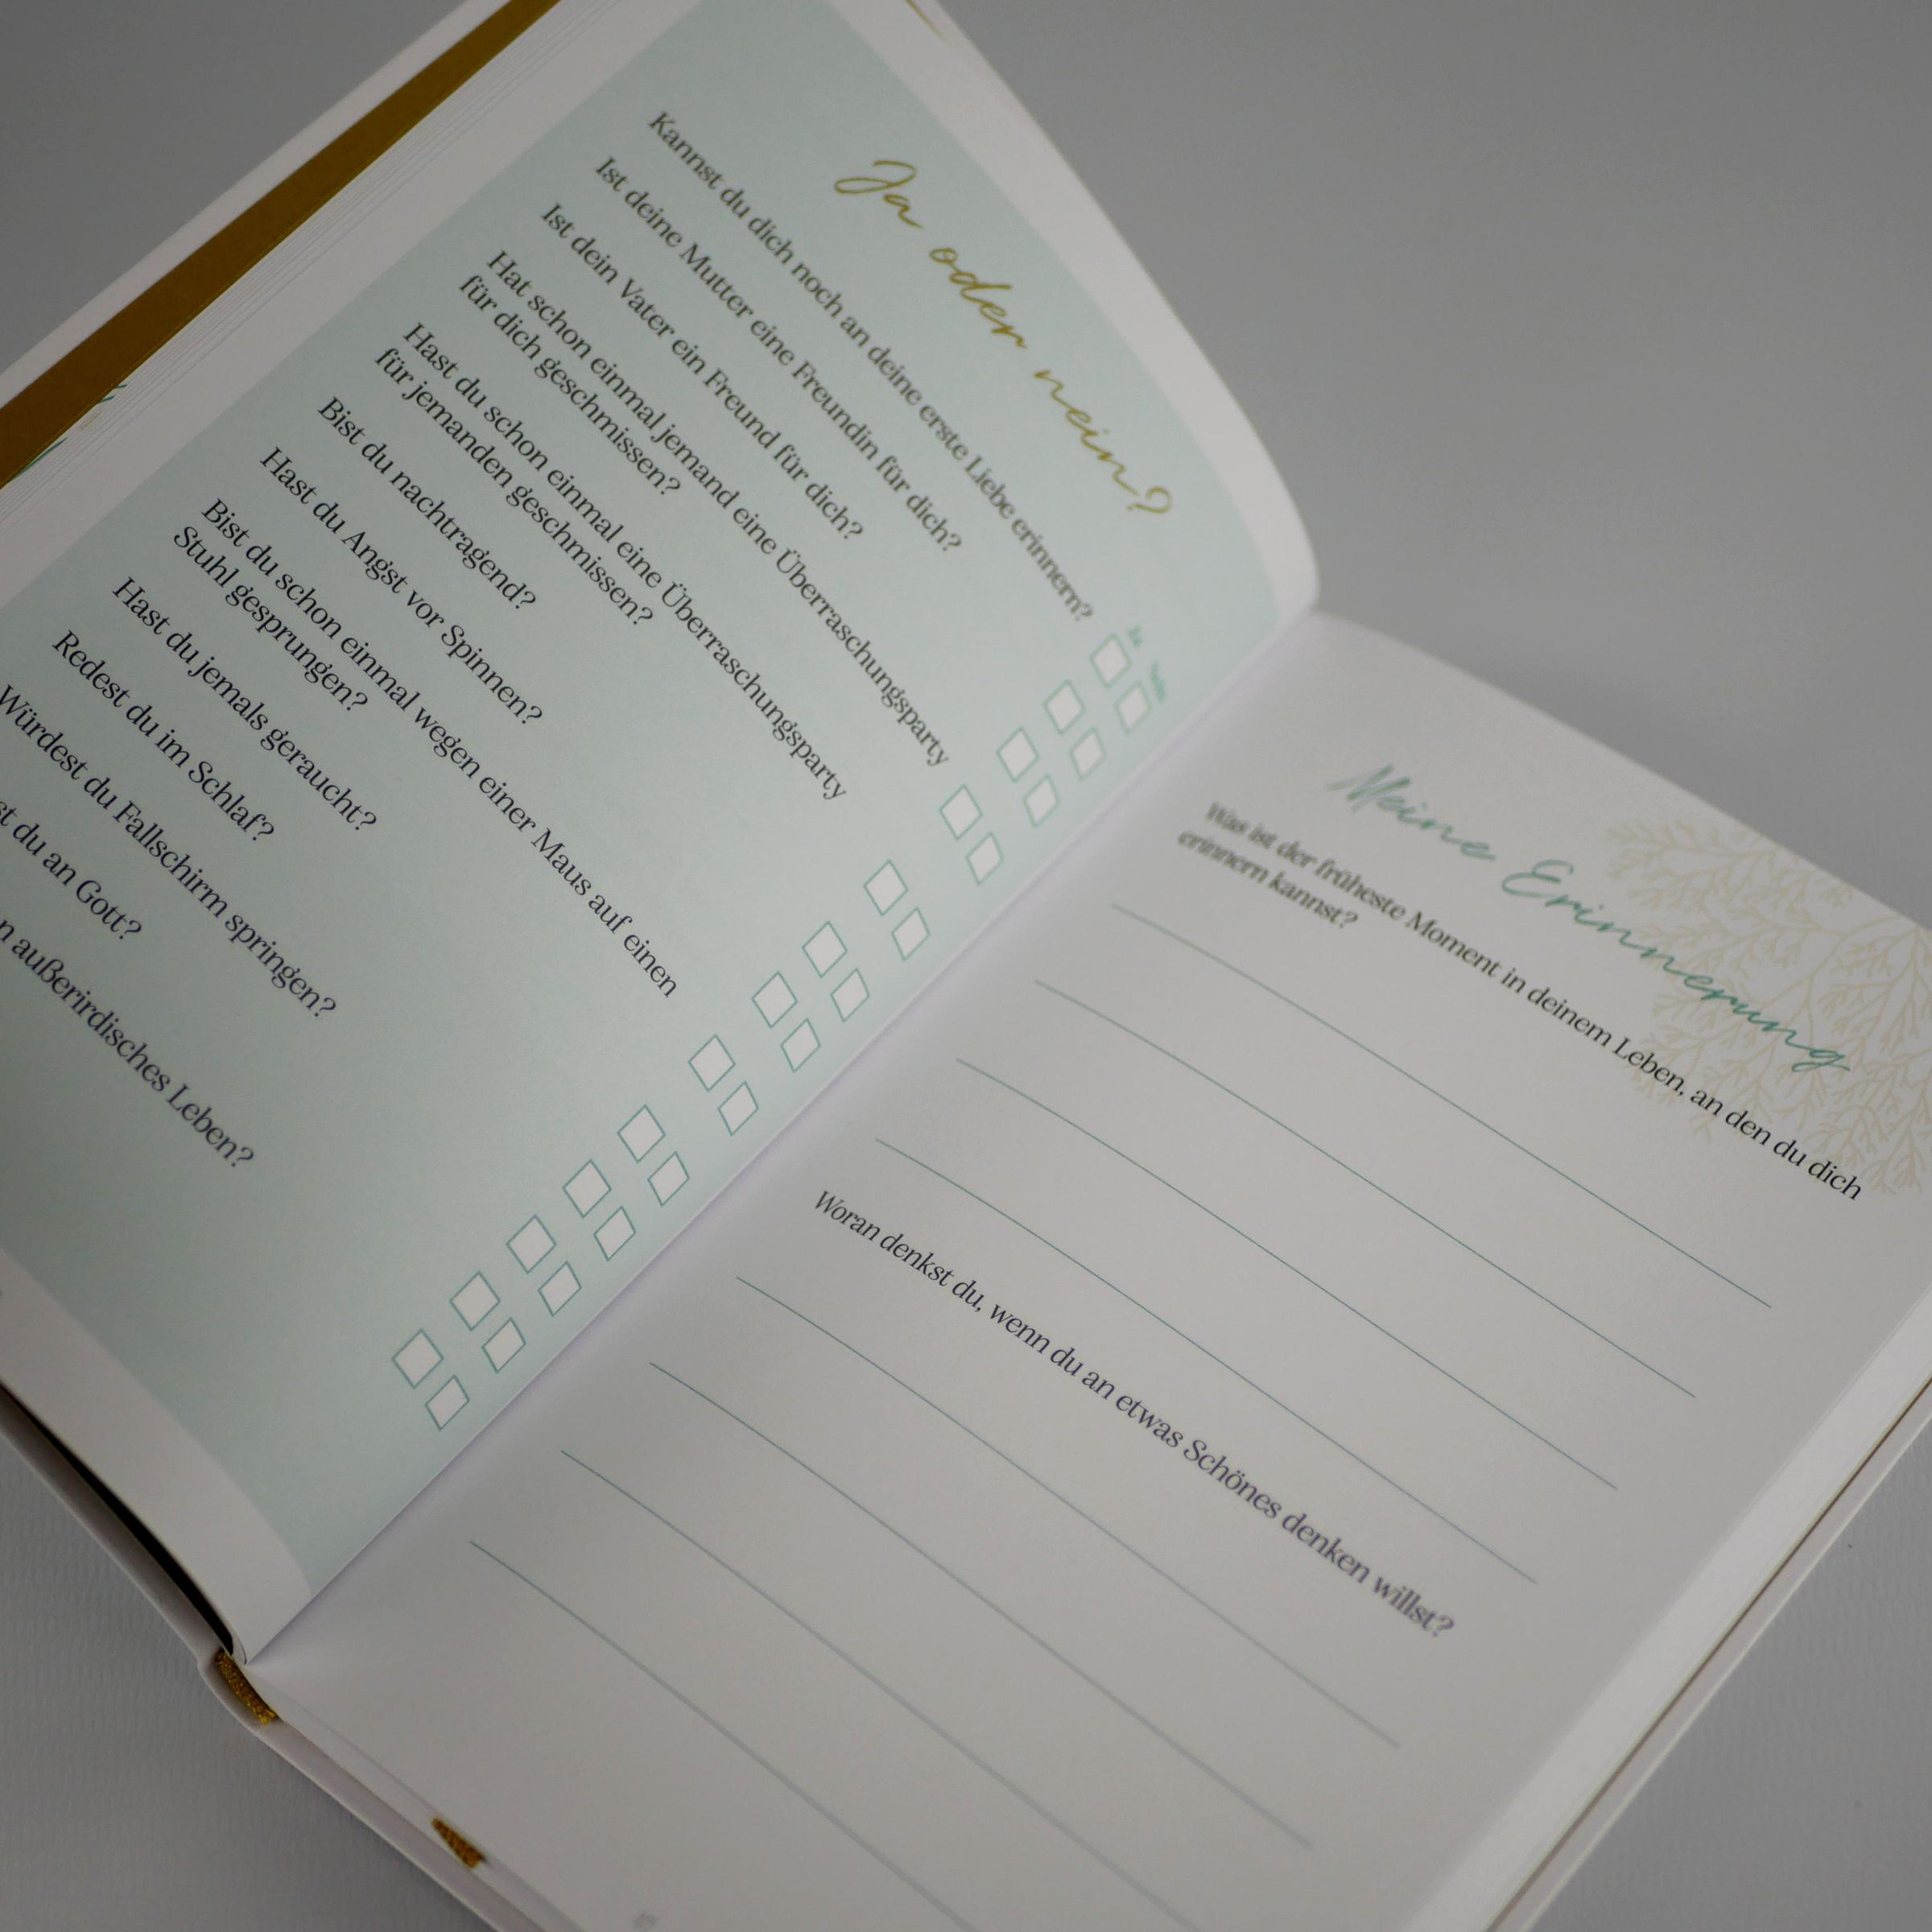 Ja oder nein?
Ja Nein
Kannst du dich noch an deine erste Liebe erinnern?
Ist deine Mutter eine Freundin für dich?
Ist dein Vater ein Freund für dich?
Hat schon einmal jemand eine Überraschungsparty
für dich geschmissen?
Hast du schon einmal eine Überraschungsparty
für jemanden geschmissen?
Bist du nachtragend?
Hast du Angst vor Spinnen?
Bist du schon einmal wegen einer Maus auf einen
Stuhl gesprungen?
Hast du jemals geraucht?
Redest du im Schlaf?
Würdest du Fallschirm springen?
du an Gott?
außerirdisches Leben?
Meine Erinnerung
Was ist der früheste Moment in deinem Leben, an den du dich
erinnern kannst?
Woran denkst du, wenn du an etwas Schönes denken willst?